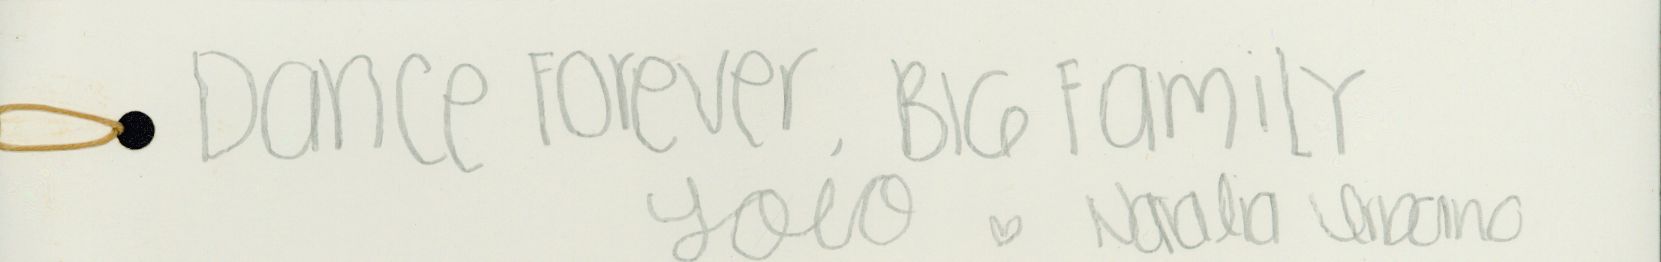 Dance Forever, BIG FamiLY
yolo ♡ Natalia